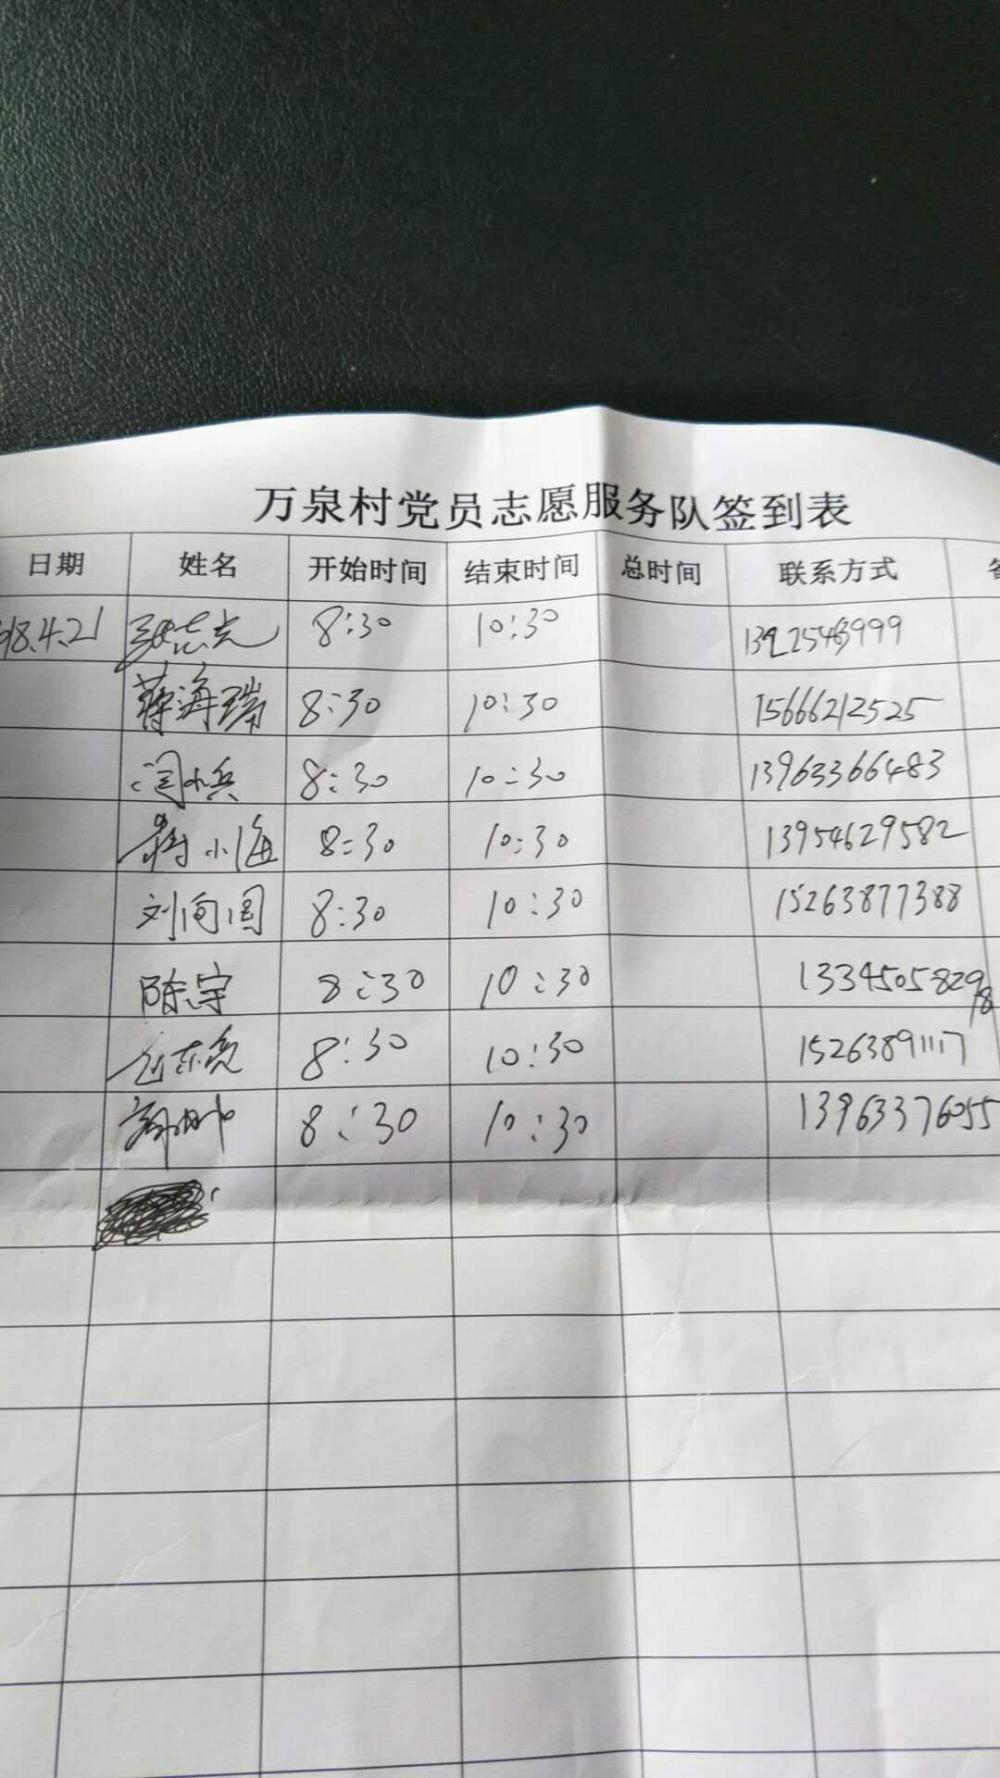 万泉村党员志愿服务队签到表
日期 姓名 开始时间 结束时间 总时间 联系方式
18.4.21 张志光 8:30 10:30
蒋海瑞 8:30 10:30 15666212525
闫小兵 8:30 10:30 13963366483
蒋小海 8:30 10:30 13954629582
刘向国 8:30 10:30 15263877388
陈宇 8:30 10:30 13345058298
8:30 10:30 15263891117
8:30 10:30 13963376055